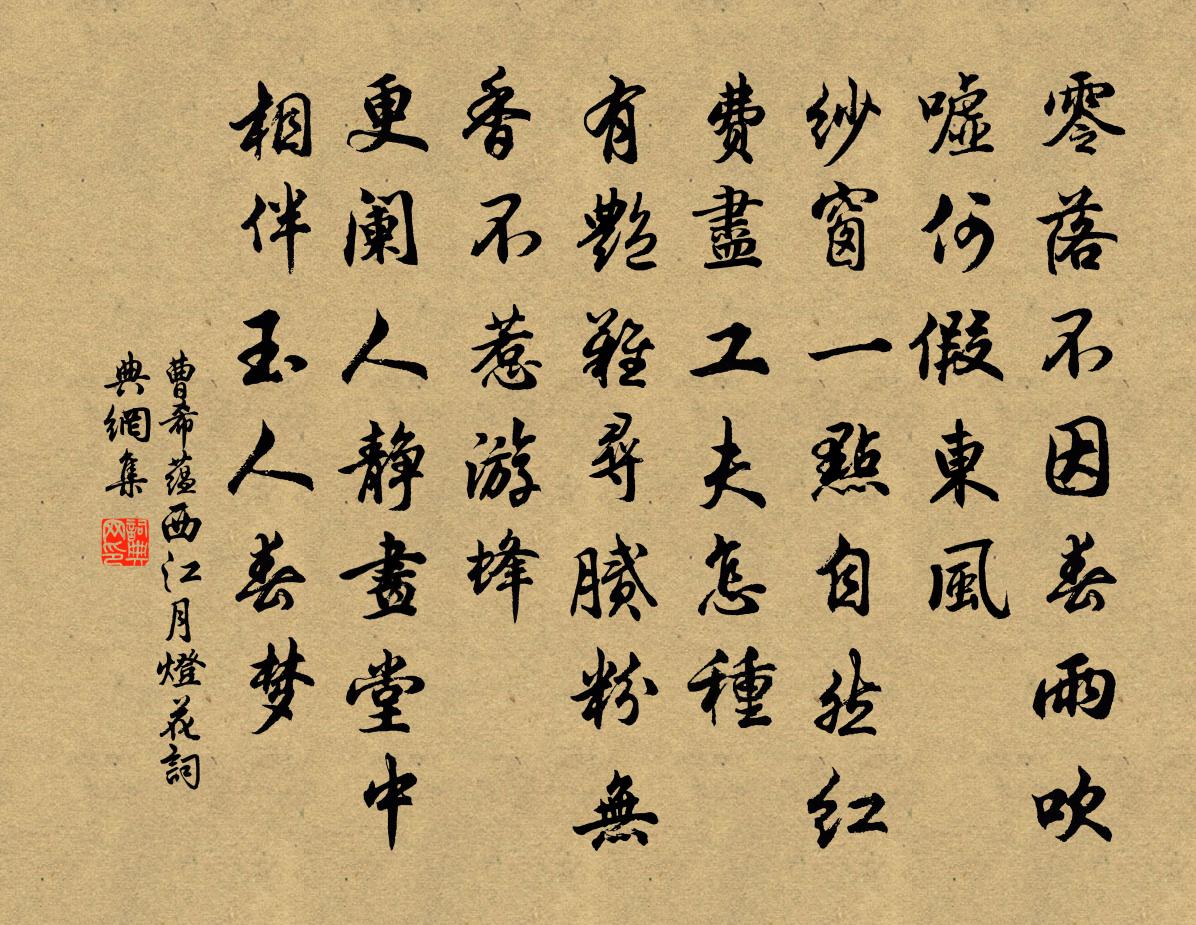 零落不因春雨吹
噓何假東風
紗窗一點自然紅
費盡工夫怎種
有艷難尋膩粉無
香不惹游蜂
更阑人静畫堂中
相伴玉人春梦
曹希蕴西江月燈花詞
典網集
詞典网印